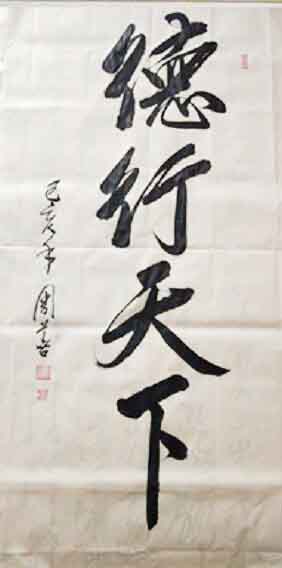 德行天下
己亥年 周兰喜